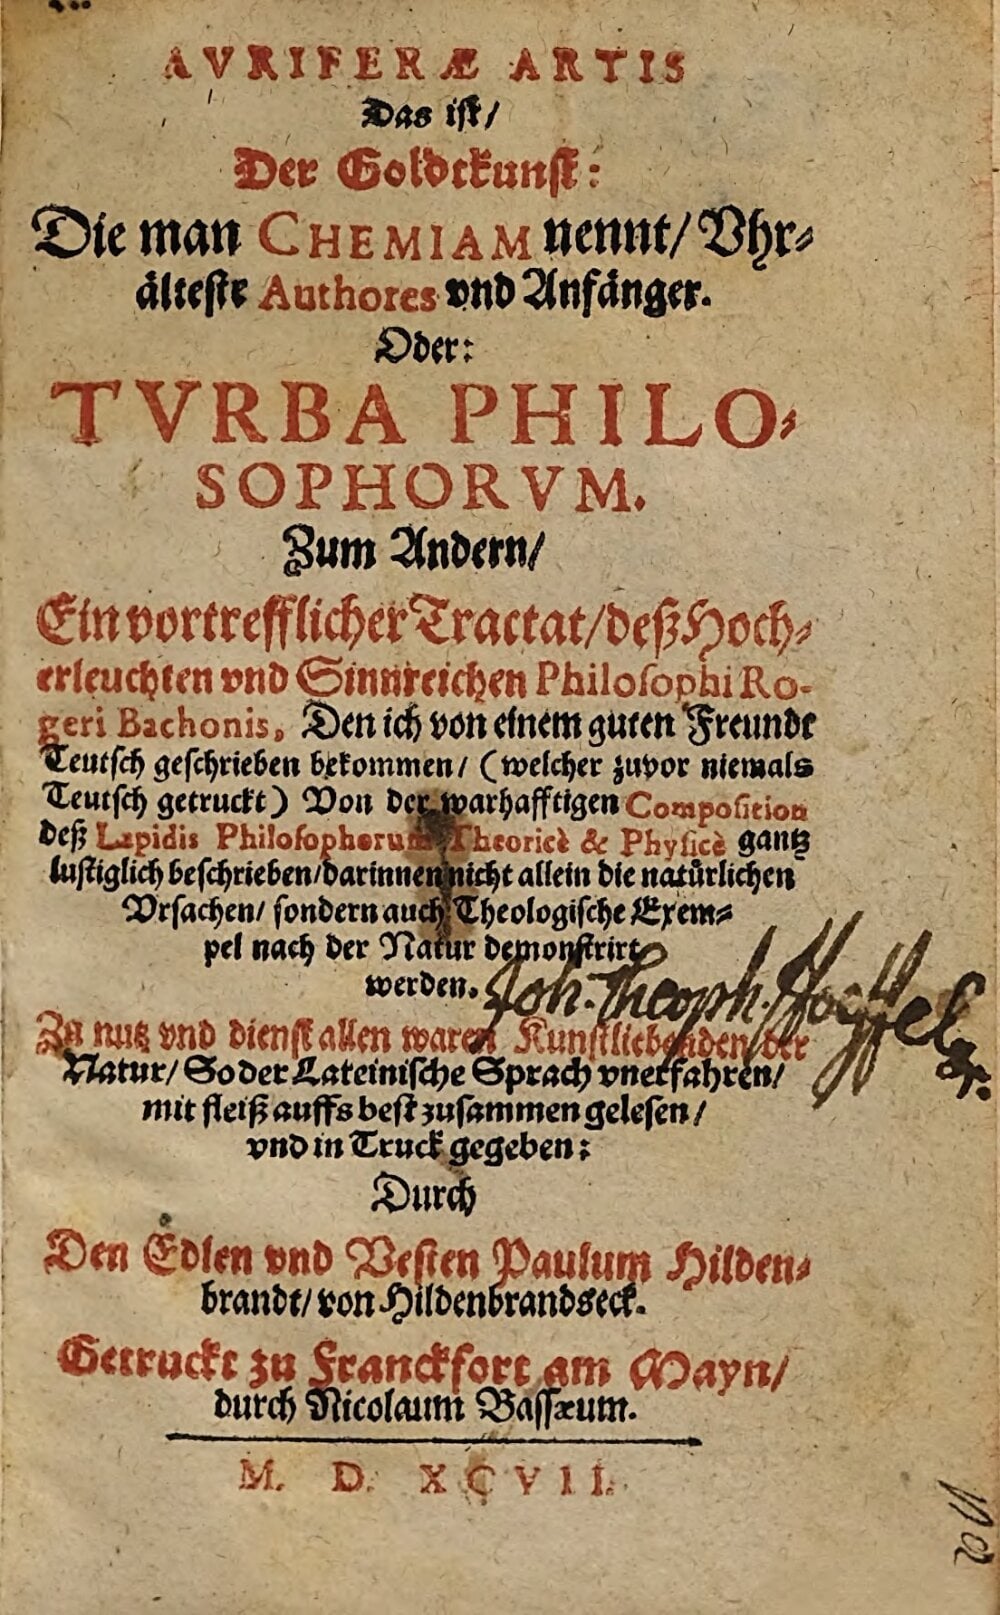 AVRIFERÆ ARTIS
Das ist/
Der Goldtkunst:
Die man CHEMIAM nennt/ Vhr⸗
älteste Authores vnd Anfänger.
Oder:
TVRBA PHILO⸗
SOPHORVM.
Zum Andern/
Ein vortrefflicher Tractat/ deß Hoch⸗
erleuchten vnd Sinnreichen Philosophi Ro-
geri Bachonis, Den ich von einem guten Freunde
Teutsch geschrieben bekommen/ (welcher zuvor niemals
Teutsch getruckt) Von der warhafftigen Composition
deß Lapidis Philosophorum Theoricè & Physicè gantz
lustiglich beschrieben/ darinnen nicht allein die natürlichen
Vrsachen/ sondern auch Theologische Exem⸗
pel nach der Natur demonstrirt
werden.
Joh. Theoph. Hoeffel
Dr.
Zu nutz vnd dienst allen waren Kunstliebenden der
Natur/ So der Lateinische Sprach vnerfahren/
mit fleiß auffs best zusammen gelesen/
vnd in Truck gegeben:
Durch
Den Edlen vnd Vesten Paulum Hilden⸗
brandt/ von Hildenbrandseck.
Getruckt zu Franckfort am Mayn/
durch Nicolaum Bassæum.
M. D. XCVII.